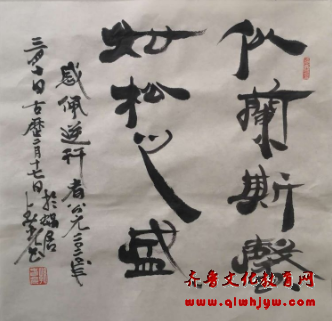 似蘭斯馨
如松之盛
感佩逆行者公元二零二零年
三月十日古歷二月十七日
齐鲁文化教育网
www.qlwhjyw.com